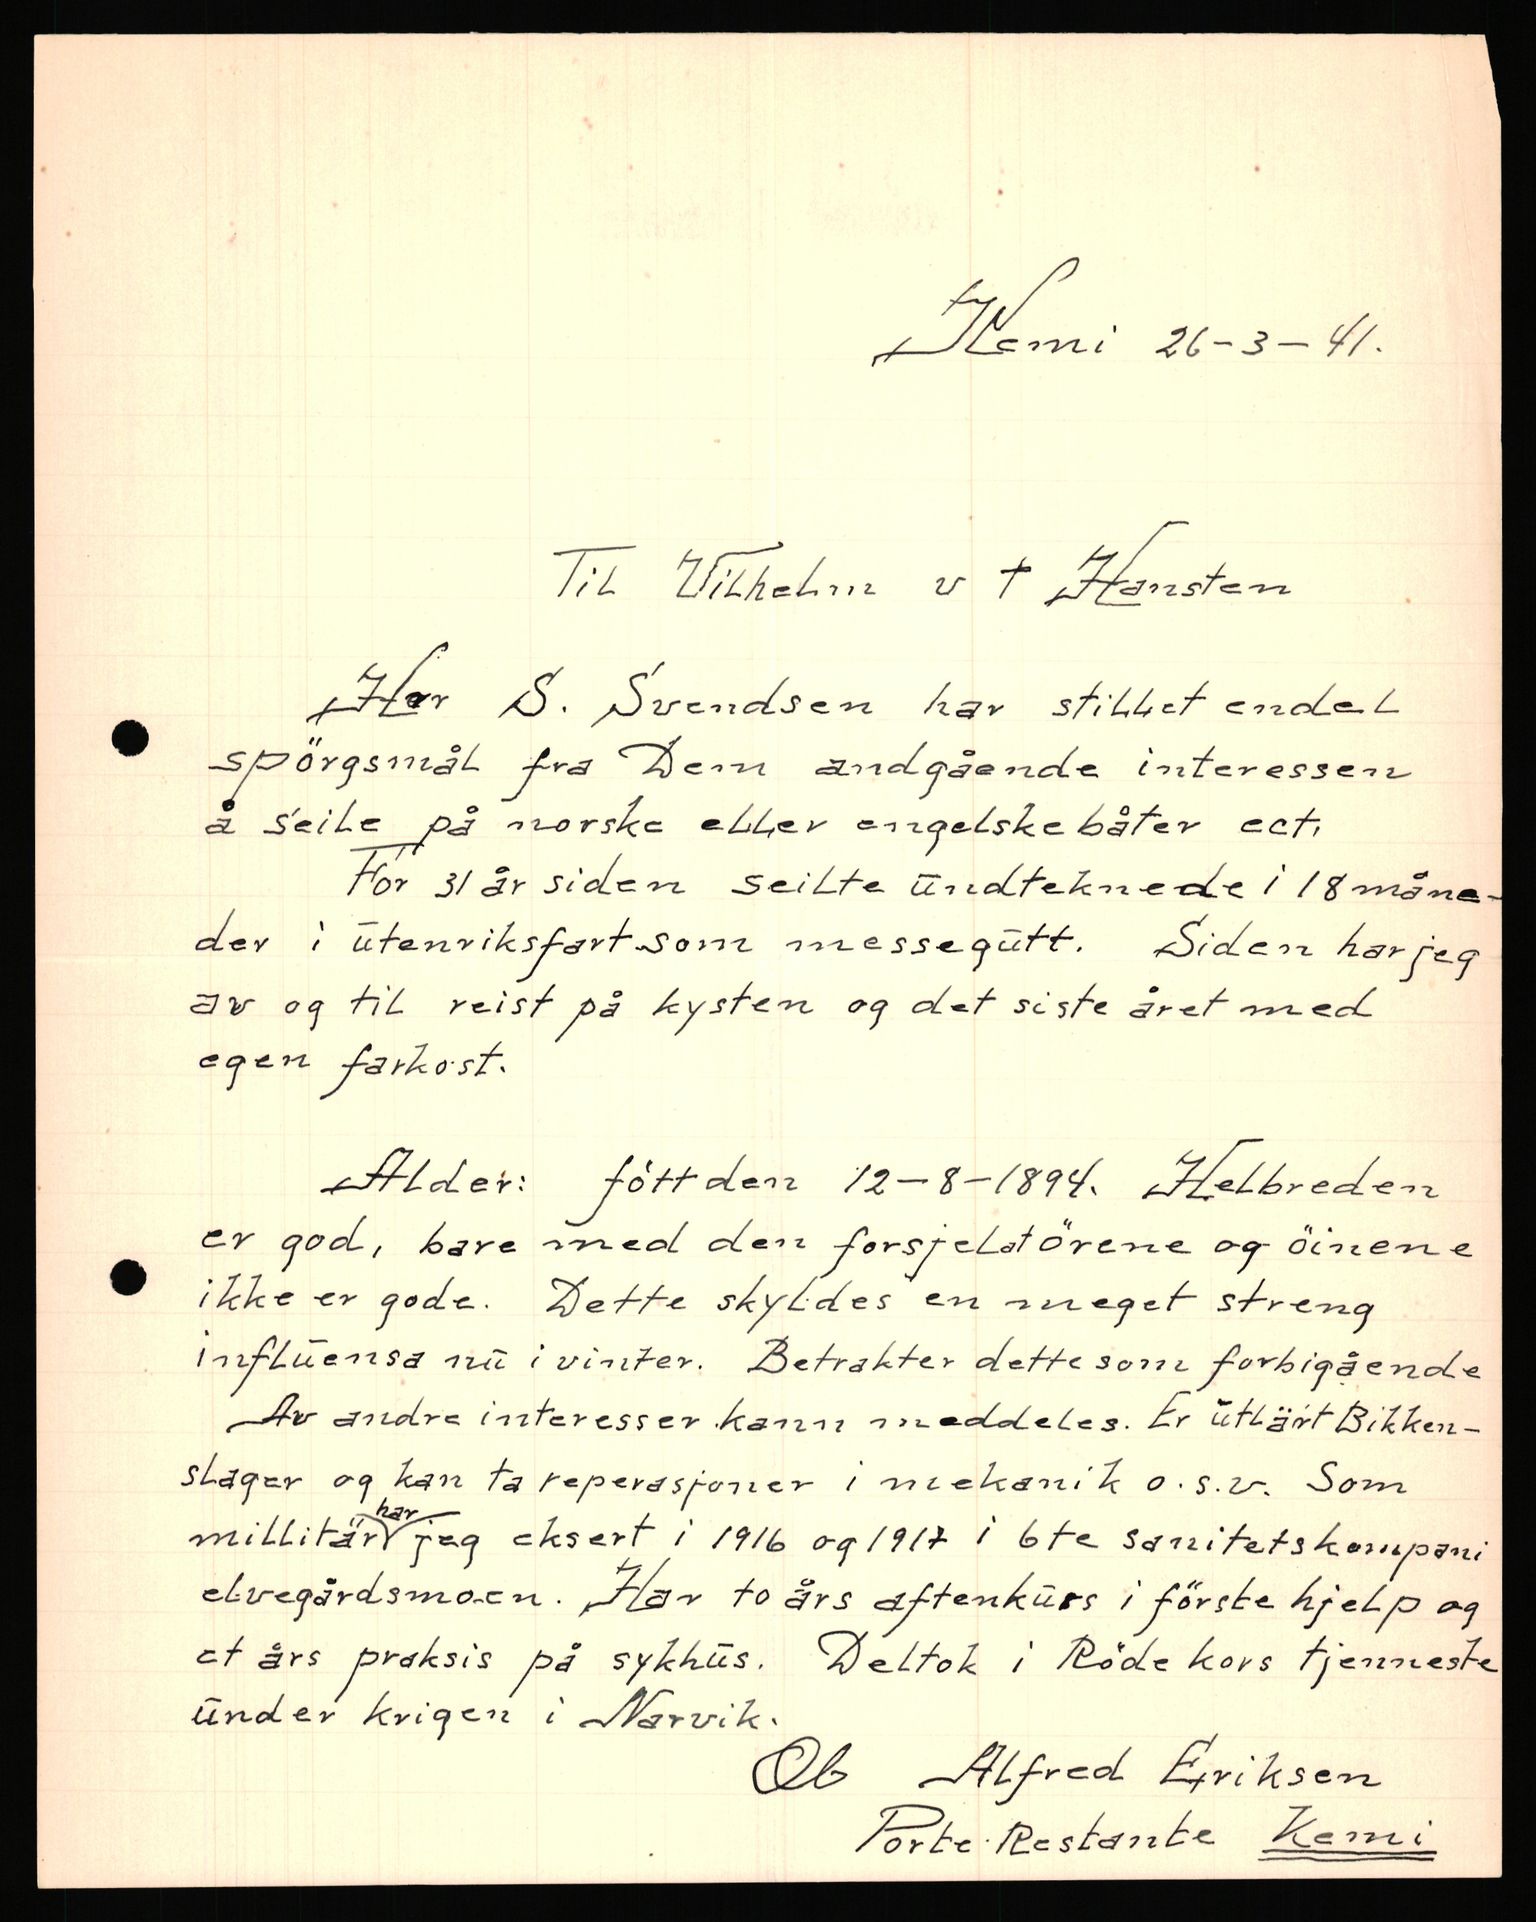 Kemi 26-3-41.
Til Vilhelm v t Hansten
Herr S. Svendsen har stillet endel
spörgsmål fra Dem andgående interessen
å seile på norske eller engelske båter ect.
For 31 år siden seilte ūndteknede i 18 måne-
der i ūtenriksfart som messegūtt. Siden har jeg
av og til reist på kysten og det siste året med
egen farkost.
Alder: föttden 12-8-1894. Helbreden
er god, bare med den forsjel at örene og öinene
ikke er gode. Dette skyldes en meget streng
inflūensa nū i vinter. Betrakter dette som forbigående
Av andre interesser kann meddeles. Er ūtlärt Bikken-
slager og kan ta reperasjoner i mekanik o.s.v. Som
millitär har jeg eksert i 1916 og 1917 i 6te sanitetskompani
elvegårdsmoen. Har to års aftenkūrs i förste hjelp og
et års praksis på sykhūs. Deltok i Röde kors tjenneste
ūnder krigen i Narvik.
Ob Alfred Eriksen
Porte Restante Kemi